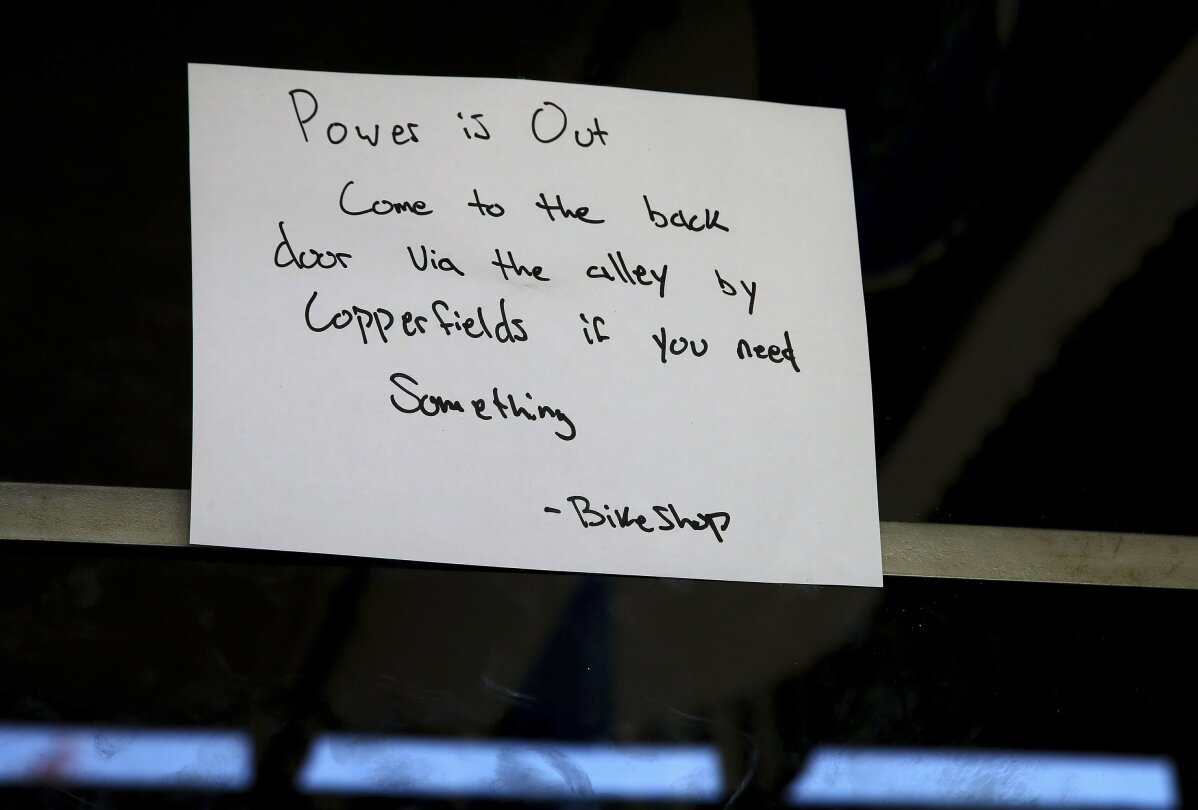 Power is Out
Come to the back
door via the alley by
Copperfields if you need
Something
- Bike shop